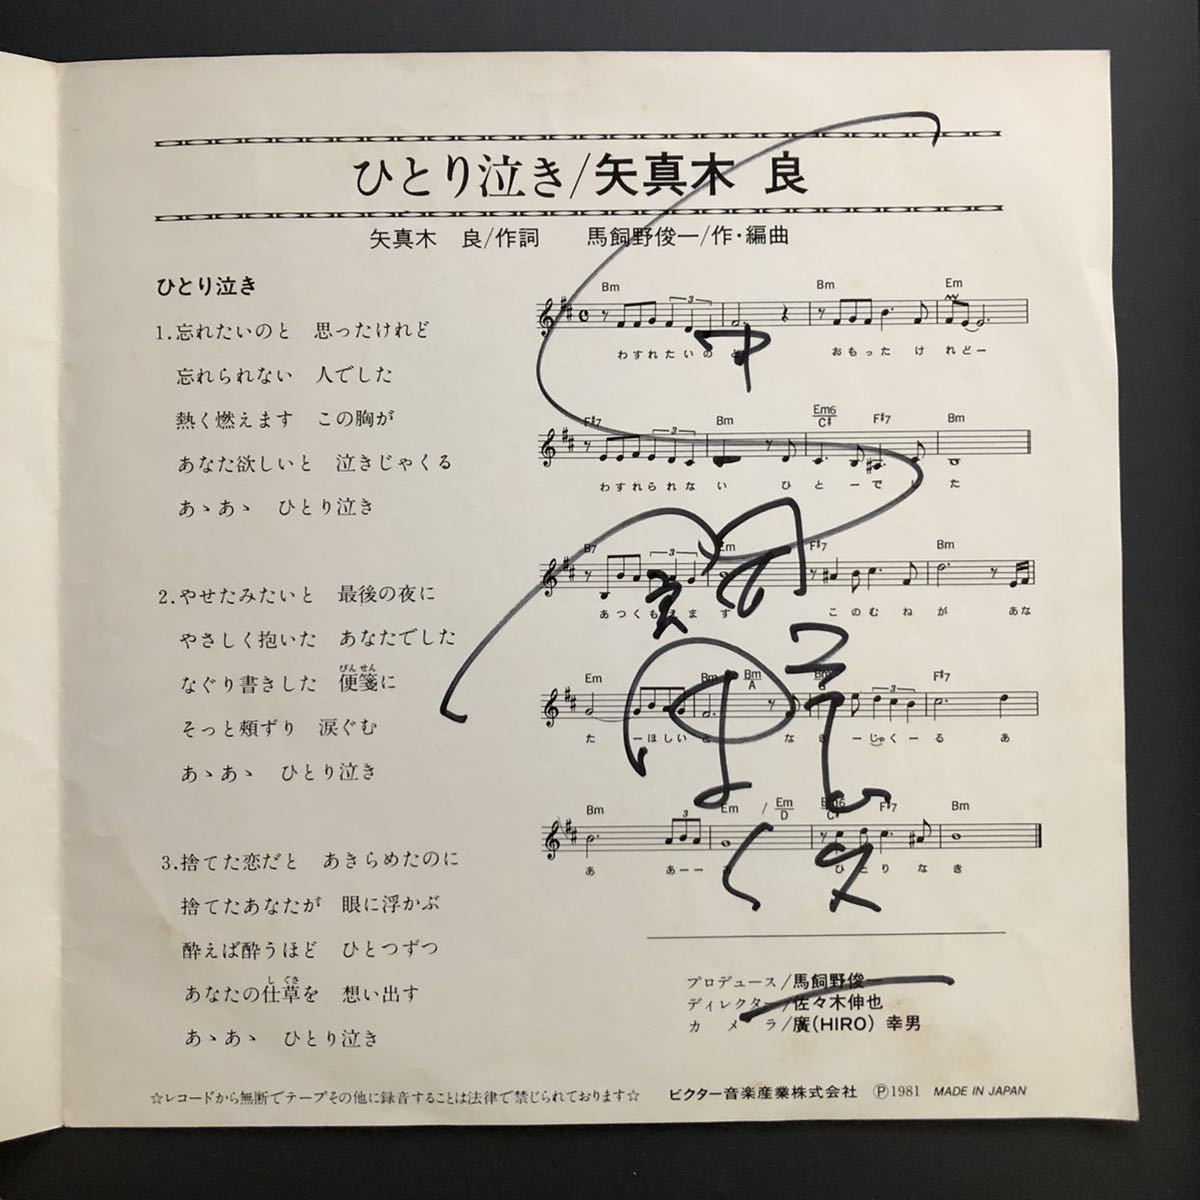 ひとり泣き/矢真木 良
矢真木　良/作詞　　馬飼野俊一/作・編曲
ひとり泣き
1.忘れたいのと　思ったけれど
忘れられない　人でした
熱く燃えます　この胸が
あなた欲しいと　泣きじゃくる
あゝあゝ　ひとり泣き
2.やせたみたいと　最後の夜に
やさしく抱いた　あなたでした
びんせん
なぐり書きした　便箋に
そっと頬ずり　涙ぐむ
あゝあゝ　ひとり泣き
3.捨てた恋だと　あきらめたのに
捨てたあなたが　眼に浮かぶ
酔えば酔うほど　ひとつずつ
しぐさ
あなたの仕草を　想い出す
あゝあゝ　ひとり泣き
Bm Bm Em
わすれたいのと おもったけれどー
F♯7 Bm Em6/C♯ F♯7 Bm
わすれられない ひとーでした
B7 Em F♯7 Bm
あつくもえます このむねが あな
Em Bm Bm/A F♯7
たーほしいと なきーじゃくーる あ
Bm Em / Em/D Em6/C♯ F♯7 Bm
あ あーー ひとりなき
プロデュース/馬飼野俊一
ディレクター/佐々木伸也
カメラ/廣(HIRO) 幸男
☆レコードから無断でテープその他に録音することは法律で禁じられております☆
ビクター音楽産業株式会社 Ⓟ1981 MADE IN JAPAN